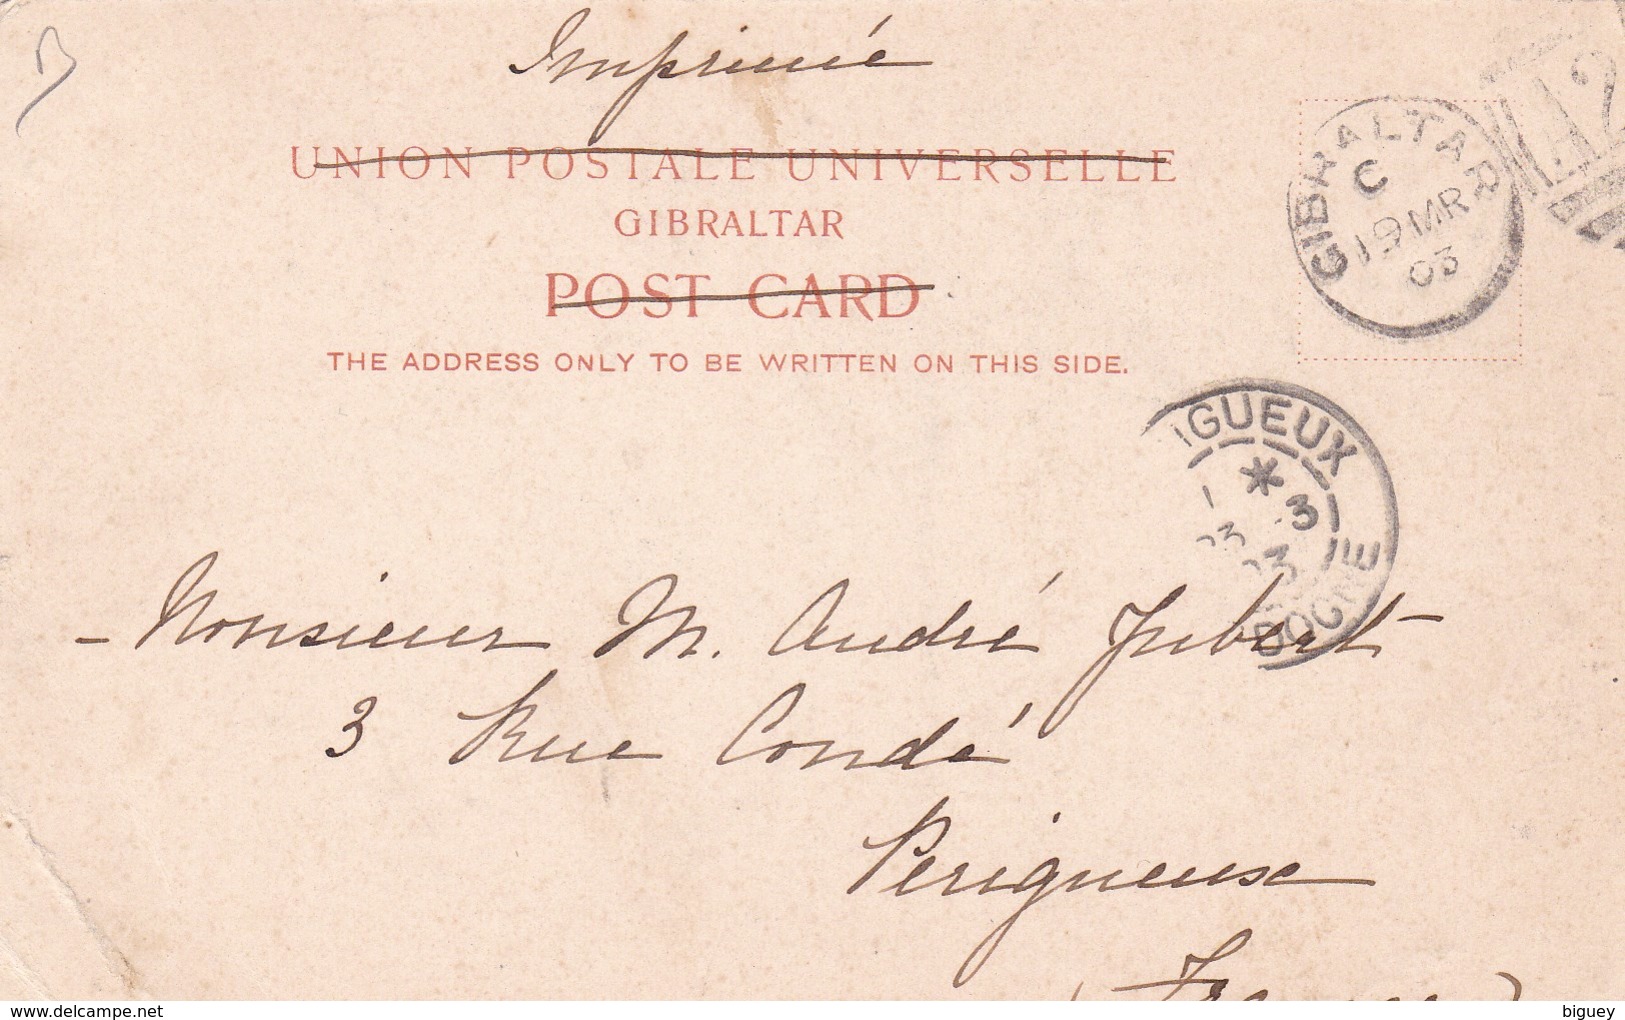 Imprimé
UNION POSTALE UNIVERSELLE
GIBRALTAR
POST CARD
THE ADDRESS ONLY TO BE WRITTEN ON THIS SIDE.
GIBRALTAR
C
19 MR
03
A2
IGUEUX
3
DOGNE
- Monsieur M. André Jubert
3 Rue Condé
Perigueuse
(France)
delcampe.net
biguey